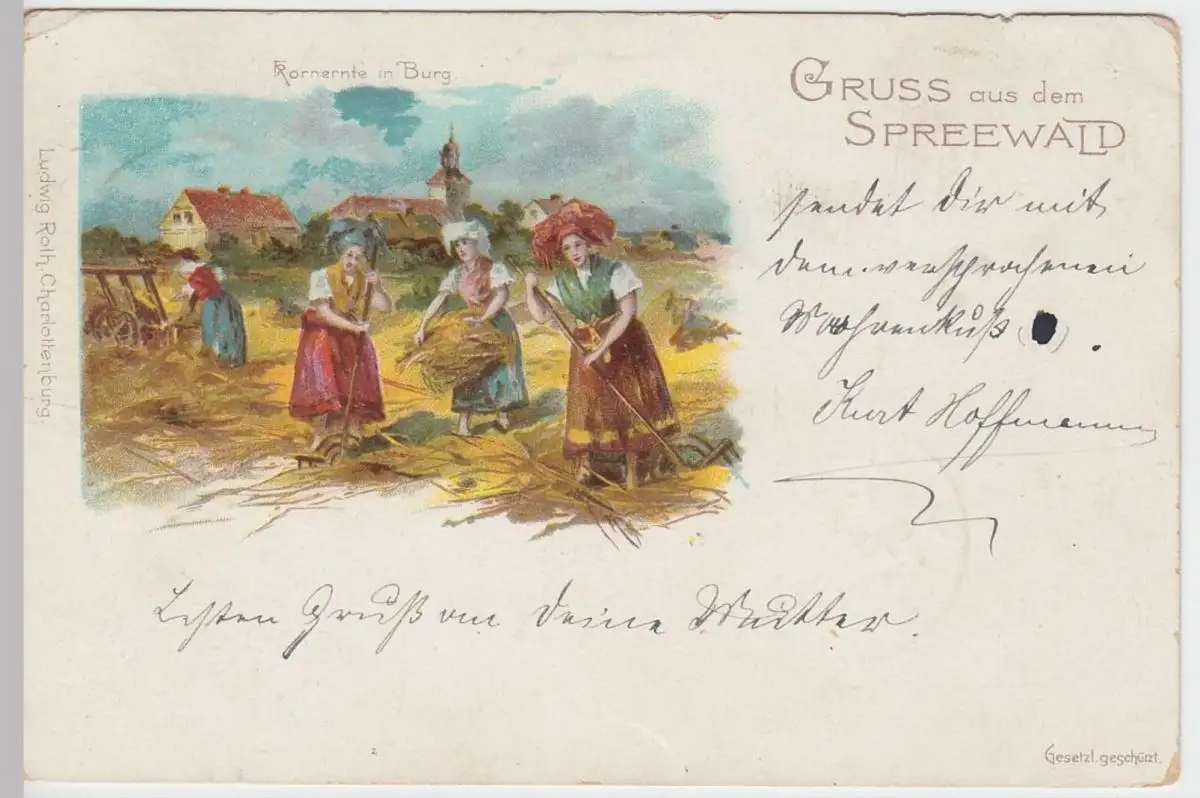 Kornernte in Burg.
GRUSS aus dem
SPREEWALD
Ludwig Roth, Charlottenburg.
sendet Dir mit
dem versprochenen
Kurt Hoffmann
Besten Gruß an Deine Mutter.
Gesetzl. geschützt.